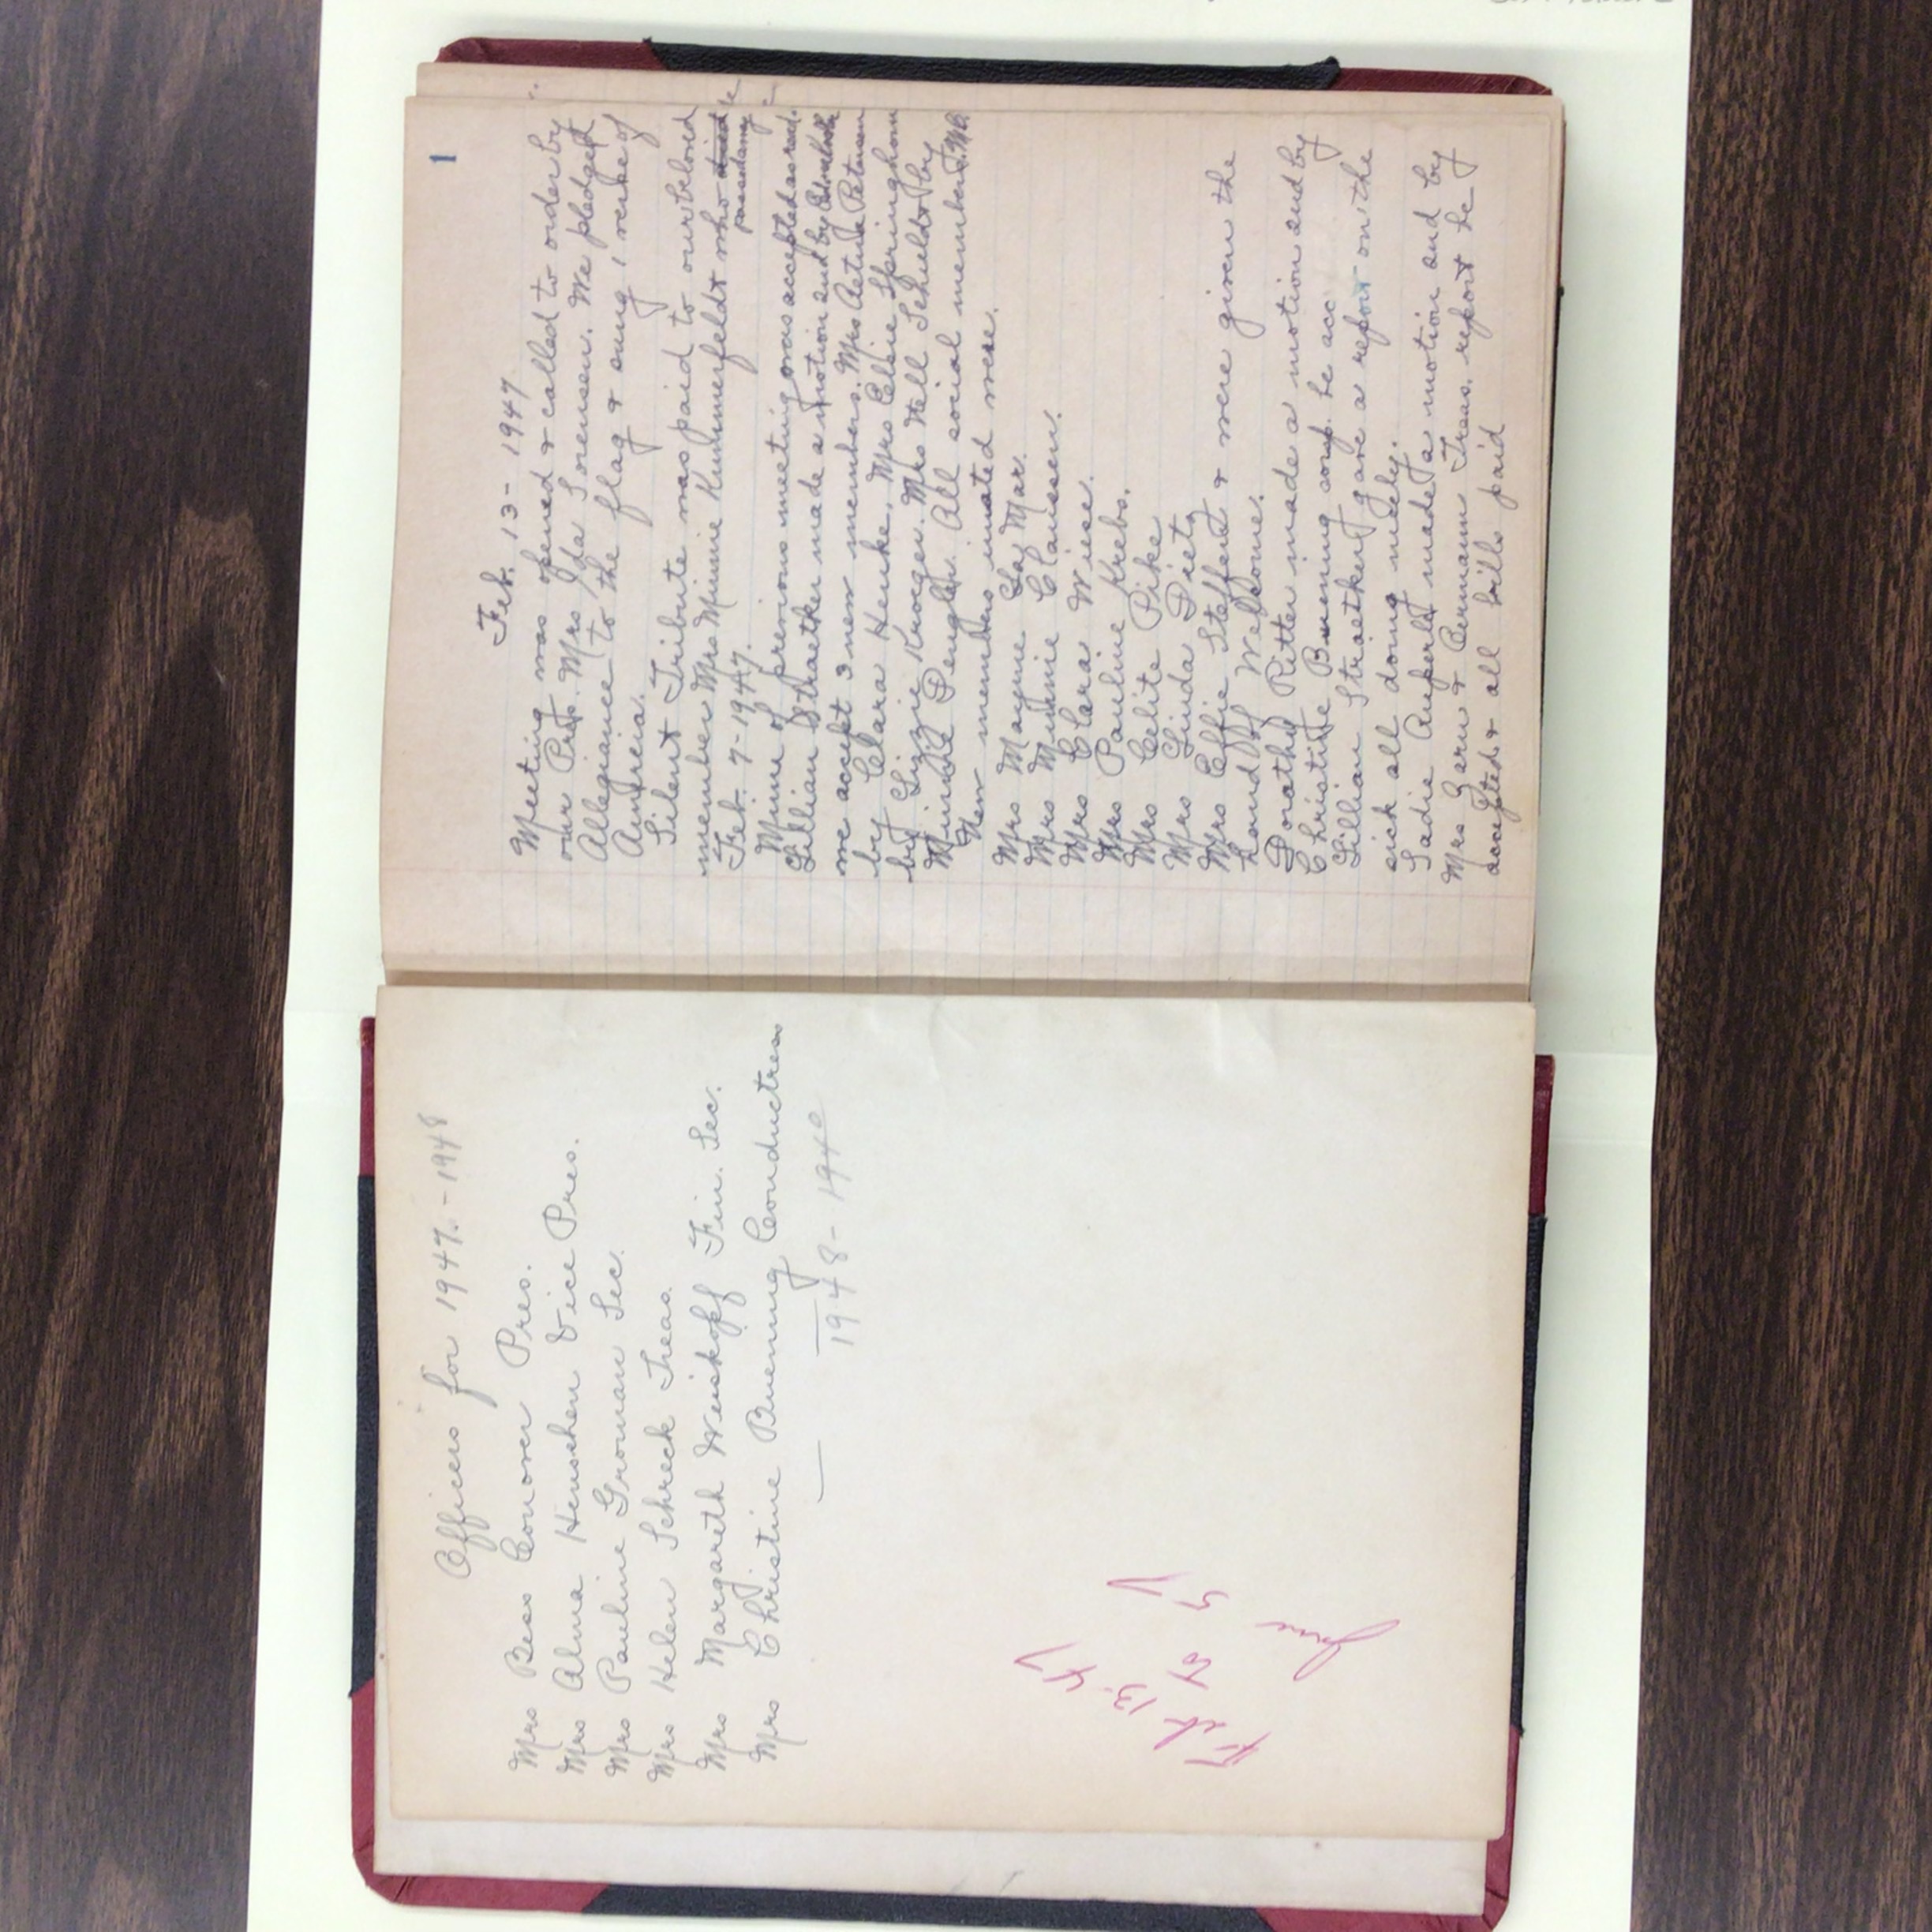 Officers for 1947.-1948
Mrs Bess Conover Pres.
Mrs Alma Henschen Vice Pres.
Mrs Pauline Growman Sec.
Mrs Helen Schreck Treas.
Mrs Margareth Weiskopf Fin. Sec.
Mrs Christine Buenning Conductress
1948-194
Feb 13-47
to
June
1
Feb. 13-1947
Meeting was opened & called to order by
our Pres. Mrs Ida Sorensen. We pledged
Allegiance to the flag & sung 1 verse of
America.
Silent Tribute was paid to our beloved
member Mrs Minnie Kummerfeldt who passed away
Feb. 7-1947.
Minute of previous meeting was accepted as read.
Lillian Straetker made a motion and by
we accept 3 new members. Mrs Petersen
by Clara Henke, Mrs Elsie Springhorn
by Lizzie Kruoger. Mrs Nell Schuldt by
Minnie Dengler. All social members.
New members iniated were.
Mrs Mayme La Mar.
Mrs Minnie Claussen.
Mrs Clara Wiese.
Mrs Pauline Krebs.
Mrs Celite Pike
Mrs Linda Dietz
Mrs Effie Steffens & were given the
hand of Welcome.
Dorothy Ritter made a motion and by
Christine Buenning corp. be acc
Lillian Straetker gave a report on the
sick all doing nicely.
Sadie Auperle made a motion and by
Mrs Garu & Permann Treas. report be
accepted & all bills paid